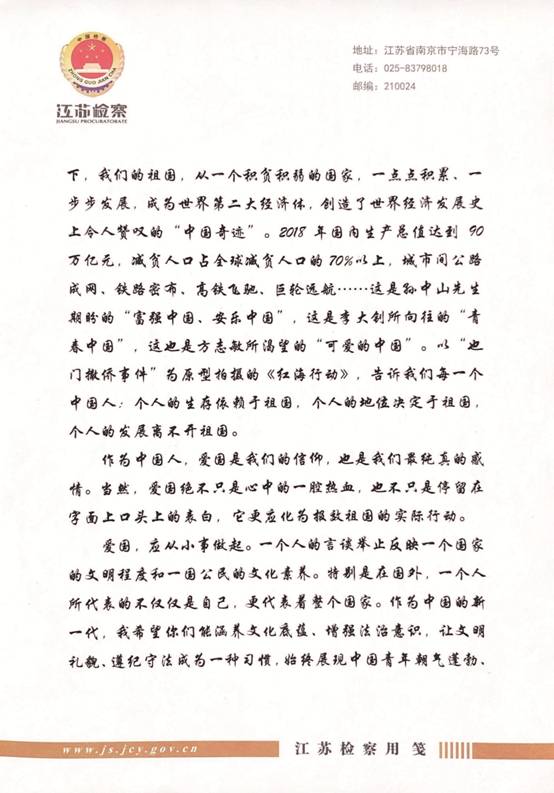 中国检察
ZHONG GUO JIAN CHA
江苏检察
JIANGSU PROCURATORATE
地址：江苏省南京市宁海路73号
电话：025-83798018
邮编：210024
下，我们的祖国，从一个积贫积弱的国家，一点点积累、一
步步发展，成为世界第二大经济体，创造了世界经济发展史
上令人赞叹的“中国奇迹”。2018 年国内生产总值达到 90
万亿元，减贫人口占全球减贫人口的 70%以上，城市间公路
成网、铁路密布、高铁飞驰、巨轮远航……这是孙中山先生
期盼的“富强中国、安乐中国”，这是李大钊所向往的“青
春中国”，这也是方志敏所渴望的“可爱的中国”。以“也
门撤侨事件”为原型拍摄的《红海行动》，告诉我们每一个
中国人：个人的生存依赖于祖国，个人的地位决定于祖国，
个人的发展离不开祖国。
作为中国人，爱国是我们的信仰，也是我们最纯真的感
情。当然，爱国绝不只是心中的一腔热血，也不只是停留在
字面上口头上的表白，它更应化为报效祖国的实际行动。
爱国，应从小事做起。一个人的言谈举止反映一个国家
的文明程度和一国公民的文化素养。特别是在国外，一个人
所代表的不仅仅是自己，更代表着整个国家。作为中国的新
一代，我希望你们能涵养文化底蕴、增强法治意识，让文明
礼貌、遵纪守法成为一种习惯，始终展现中国青年朝气蓬勃、
www.js.jcy.gov.cn
江苏检察用笺